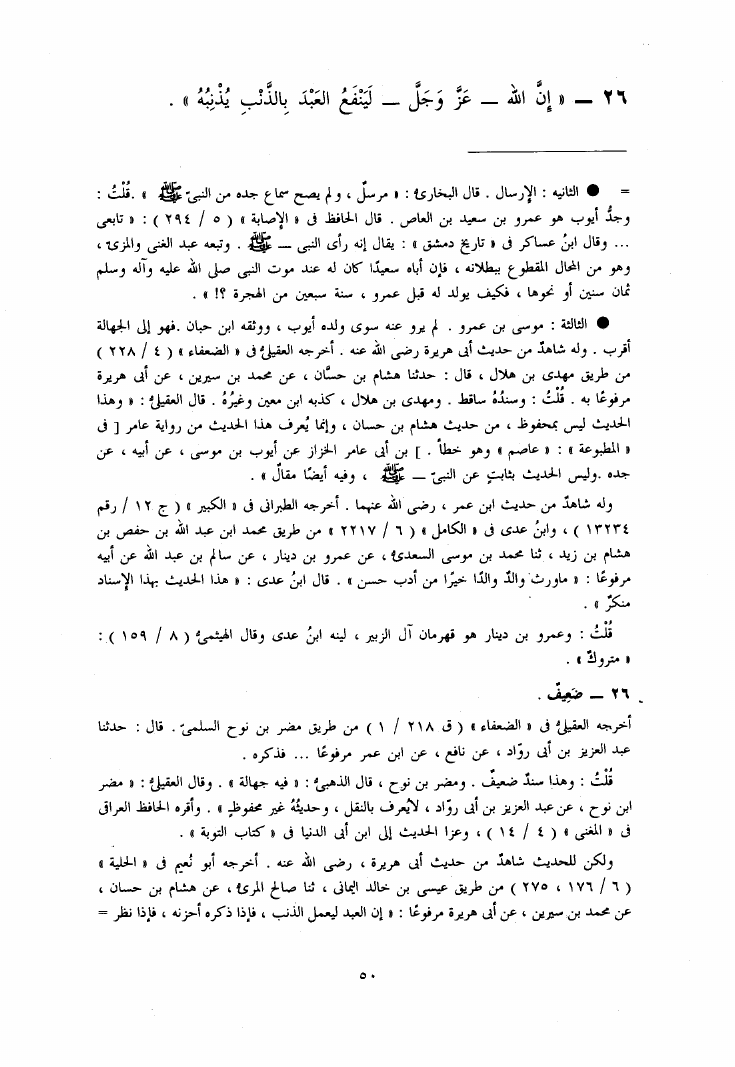 ٢٦ ــ « إِنَّ الله ــ عَزَّ وَجَلَّ ــ لَيَنْفَعُ العَبْدَ بِالذَّنْبِ يُذْنِبُهُ » .
= ● الثانيه : الإرسال . قال البخارىُّ : « مرسلٌ ، ولم يصح سماع جده من النبىّ ﷺ » .قُلْتُ :
وجدُّ أيوب هو عمرو بن سعيد بن العاص . قال الحافظ فى « الإصابة » ( ٥ / ٢٩٤ ) : « تابعى
... وقال ابنُ عساكر فى « تاريخ دمشق » : يقال إنه رأى النبى ــ ﷺ . وتبعه عبد الغنى والمزىّ ،
وهو من المحال المقطوع ببطلانه ، فإن أباه سعيدًا كان له عند موت النبى صلى الله عليه وآله وسلم
ثمان سنين أو نحوها ، فكيف يولد له قبل عمرو ، سنة سبعين من الهجرة ؟! » .
● الثالثة : موسى بن عمرو . لم يرو عنه سوى ولده أيوب ، ووثقه ابن حبان .فهو إلى الجهالة
أقرب . وله شاهدٌ من حديث أبى هريرة رضى الله عنه . أخرجه العقيلىُّ فى « الضعفاء » ( ٤ / ٢٢٨ )
من طريق مهدى بن هلال ، قال : حدثنا هشام بن حسَّان ، عن محمد بن سيرين ، عن أبى هريرة
مرفوعًا به . قُلْتُ : وسندُهُ ساقط . ومهدى بن هلال ، كذبه ابن معين وغيرُهُ . قال العقيلىُّ : « وهذا
الحديث ليس بمحفوظ ، من حديث هشام بن حسان ، وإنما يُعرف هذا الحديث من رواية عامر [ فى
« المطبوعة » : « عاصم » وهو خطأ . ] بن أبى عامر الخزاز عن أيوب بن موسى ، عن أبيه ، عن
جده .وليس الحديث بثابتٍ عن النبىّ ــ ﷺ ، وفيه أيضًا مقالٌ » .
وله شاهدٌ من حديث ابن عمر ، رضى الله عنهما . أخرجه الطبرانى فى « الكبير » ( ج ١٢ / رقم
١٣٢٣٤ ) ، وابنُ عدى فى « الكامل » ( ٦ / ٢٢١٧ » من طريق محمد ابن عبد الله بن حفص بن
هشام بن زيد ، ثنا محمد بن موسى السعدىُّ ، عن عمرو بن دينار ، عن سالم بن عبد الله عن أبيه
مرفوعًا : « ماورث والدٌ والدًا خيرًا من أدب حسن » . قال ابنُ عدى : « هذا الحديث بهذا الإسناد
منكرٌ » .
قُلْتُ : وعمرو بن دينار هو قهرمان آل الزبير ، لينه ابنُ عدى وقال الهيثمىُّ ( ٨ / ١٥٩ ) :
« متروكٌ » .
٢٦ ــ ضَعِيفٌ .
أخرجه العقيلىُّ فى « الضعفاء » ( ق ٢١٨ / ١ ) من طريق مضر بن نوح السلمىّ . قال : حدثنا
عبد العزيز بن أبى روّاد ، عن نافع ، عن ابن عمر مرفوعًا ... فذكره .
قُلْتُ : وهذا سندٌ ضعيفٌ . ومضر بن نوح ، قال الذهبىُّ : « فيه جهالة » . وقال العقيلىُّ : « مضر
ابن نوح ، عن عبد العزيز بن أبى روّاد ، لايُعرف بالنقل ، وحديثُهُ غير محفوظٍ » . وأقره الحافظ العراق
فى « المغنى » ( ٤ / ١٤ ) ، وعزا الحديث إلى ابن أبى الدنيا فى « كتاب التوبة » .
ولكن للحديث شاهدٌ من حديث أبى هريرة ، رضى الله عنه . أخرجه أبو نُعيم فى « الحلية »
( ٦ / ١٧٦ ، ٢٧٥ ) من طريق عيسى بن خالد اليمانى ، ثنا صالح المرىُّ ، عن هشام بن حسان ،
عن محمد بن سيرين ، عن أبى هريرة مرفوعًا : « إن العبد ليعمل الذنب ، فإذا ذكره أحزنه ، فإذا نظر =
٥٠